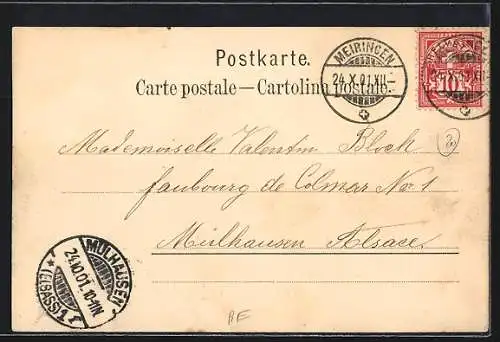 Postkarte.
Carte postale — Cartolina postale.
MEIRINGEN
24.X.01.XII-
10
Mademoiselle Valentin Bloch
faubourg de Colmar No 1
Mülhausen Alsace
MÜLHAUSEN
24.10.01.10-11N
* (ELSASS) 1
BE